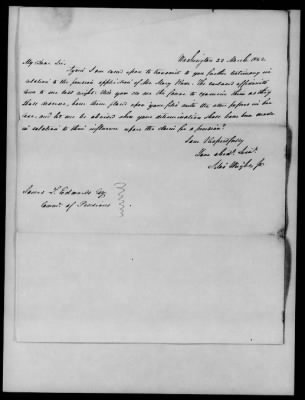 Washington 22 March 1842.
My Dear Sir.
Again I am called upon to transmit to you further testimony in
relation to the pension application of Mrs Mary
came to me last night. Will you do me the favor to examine them as they
shall deserve, have them placed upon your files with the other papers in the
case, and let me be advised when your determination shall have been made
in relation to their influence upon the claim for a pension?
I am Very respectfully
Your obedt Servt
Silas Wright, Jr.
James L. Edwards Esq.
Commr. of Pensions